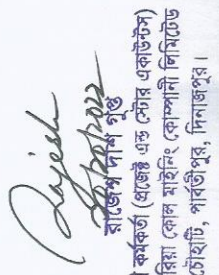 Rajesh
রাজেশ দাশ গুপ্ত
কর্মকর্তা (প্রজেক্ট এন্ড স্টোর একাউন্টস)
রিয়া কোল মাইনিং কোম্পানী লিমিটেড
চৌহাটি, পার্বতীপুর, দিনাজপুর।